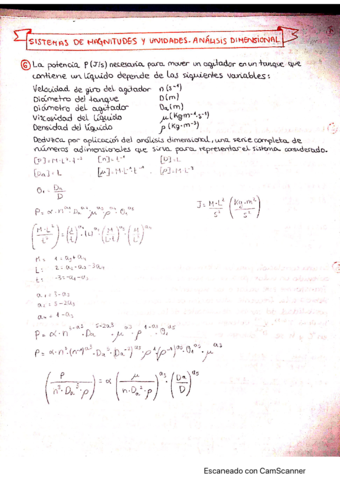 SISTEMAS DE MAGNITUDES Y UNIDADES. ANÁLISIS DIMENSIONAL
⑥ La potencia P(J/s) necesaria para mover un agitador en un tanque que
contiene un líquido depende de las siguientes variables:
Velocidad de giro del agitador n(s⁻¹)
Diámetro del tanque D(m)
Diámetro del agitador Da(m)
Viscosidad del líquido μ(kg·m⁻¹·s⁻¹)
Densidad del líquido ρ(kg·m⁻³)
Deduzca por aplicación del análisis dimensional, una serie completa de
números adimensionales que sirva para representar el sistema considerado.
[P]=M·L²·t⁻³ [n]=t⁻¹ [D]=L
[Da]=L [μ]=M·L⁻¹·t⁻¹ [ρ]=M·L⁻³
P=α·n^a1·Da^a2·μ^a3·ρ^a4·θ₁^a5
J=M·L²/s² (kg·m²/s²)
a₁=3-a₃
a₂=5-2a₃
a₄=1-a₃
P=α·n^3-a3·Da^5-2a3·μ^a3·ρ^1-a3·θ₁^a5
Escaneado con CamScanner